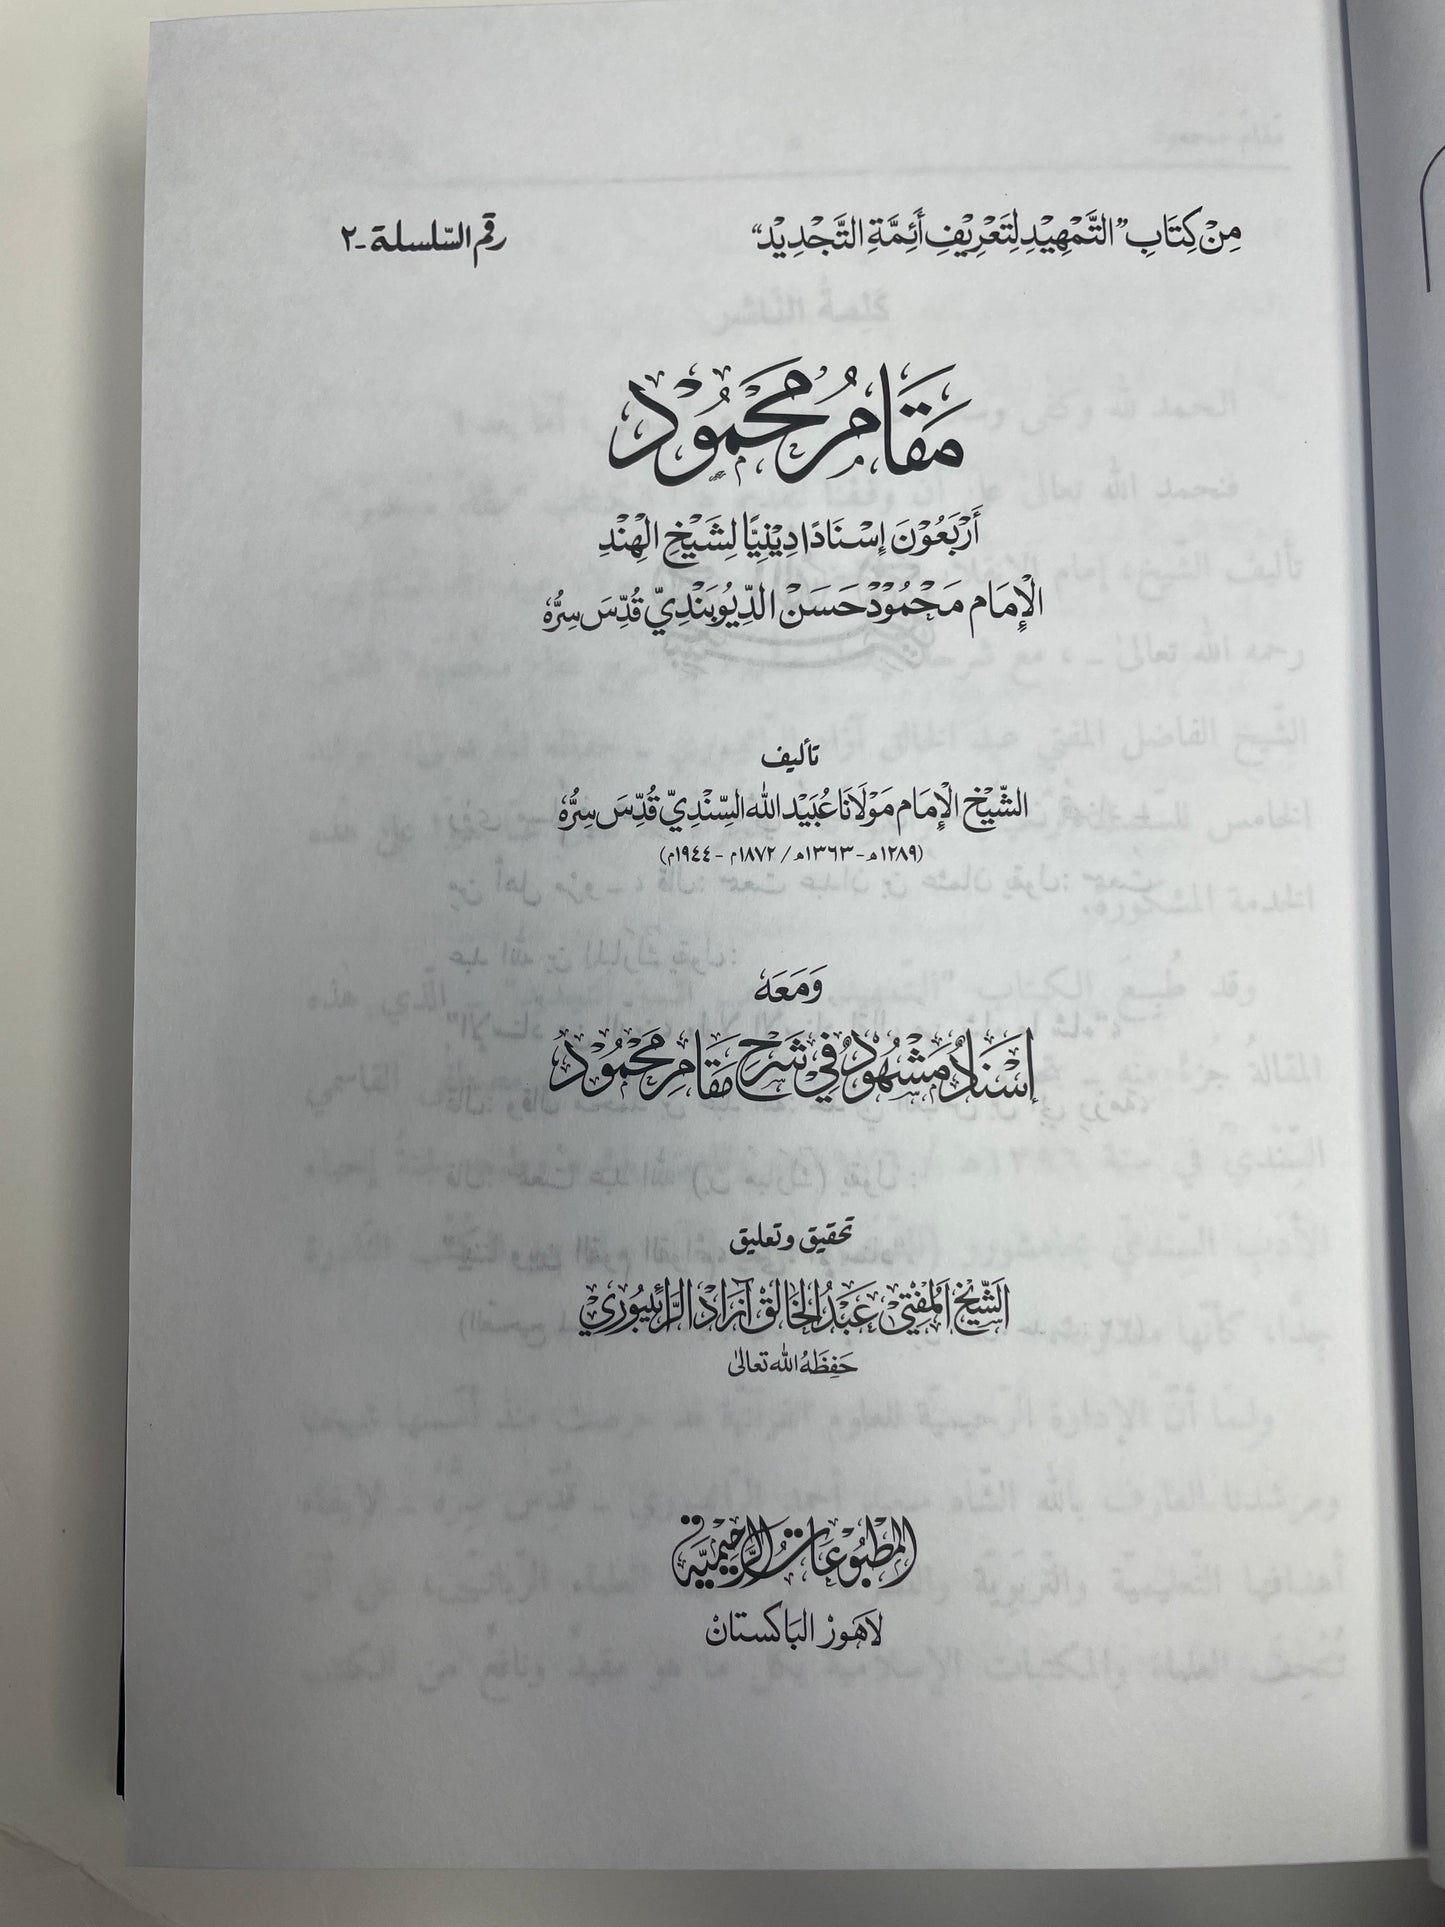 مِنْ كِتَابِ "التَّمْهِيْدِ لِتَعْرِيْفِ أَئِمَّةِ التَّجْدِيْدِ"
رقم السّلسلة - ٢
مَقَامُ مَحْمُوْدٍ
أَرْبَعُوْنَ إِسْنَادًا دِيْنِيًّا لِشَيْخِ الْهِنْدِ
الْإِمَام مَحْمُوْدْ حَسَنْ الدِّيُوْبَنْدِيّ قُدِّسَ سِرُّهٗ
تأليف
الشّيْخ الْإِمَام مَوْلَانَا عُبَيْد الله السِّنْدِيّ قُدِّسَ سِرُّهٗ
(١٢٨٩هـ - ١٣٦٣هـ / ١٨٧٢م - ١٩٤٤م)
وَمَعَهٗ
إِسْنَادٌ مَشْهُوْدٌ فِيْ شَرْحِ مَقَامِ مَحْمُوْدٍ
تحقيق وتعليق
الشّيْخ الْمُفْتِيْ عَبْدُ الخَالِقْ آزَادْ الرَّائِيْبُوْرِيْ
حَفِظَهُ الله تعالىٰ
المَطْبُوْعَاتُ الرَّحِيْمِيَّة
لَاهَوْرْ الْبَاكِسْتَانْ